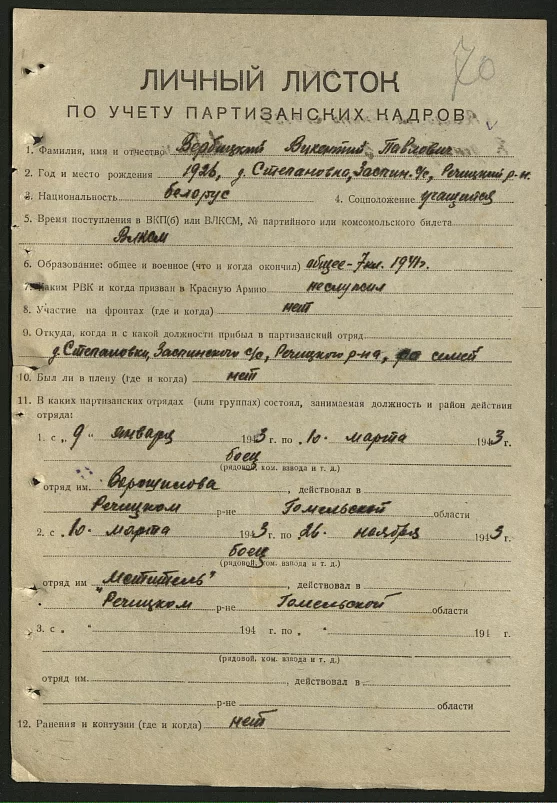 70
ЛИЧНЫЙ ЛИСТОК
ПО УЧЕТУ ПАРТИЗАНСКИХ КАДРОВ
1. Фамилия, имя и отчество Вербицкий Викентий Павлович
2. Год и место рождения 1926, д. Степановка, Заспин. с/с, Речицкий р-н.
3. Национальность белорус 4. Соцположение учащийся
5. Время поступления в ВКП(б) или ВЛКСМ, № партийного или комсомольского билета
Влксм
6. Образование: общее и военное (что и когда окончил) общее-7кл. 1941г.
7. Каким РВК и когда призван в Красную Армию неслужил
8. Участие на фронтах (где и когда) нет
9. Откуда, когда и с какой должности прибыл в партизанский отряд
д. Степановки, Заспинского с/с, Речицкого р-на, семей
10. Был ли в плену (где и когда) нет
11. В каких партизанских отрядах (или группах) состоял, занимаемая должность и район действия
отряда:
1. с „9“ января 1943 г. по „10. марта 1943 г.
боец
(рядовой, ком. взвода и т. д.)
отряд им. Ворошилова, действовал в
Речицком р-не Гомельской области
2. с „10. марта 1943 г. по „26. ноября 1943 г.
боец
(рядовой, ком. взвода и т. д.)
отряд им „Мститель“, действовал в
Речицком р-не Гомельской области
3. с „ “ 194 г. по „ “ 194 г.
(рядовой, ком. взвода и т. д.)
отряд им. , действовал в
р-не области
12. Ранения и контузии (где и когда) нет